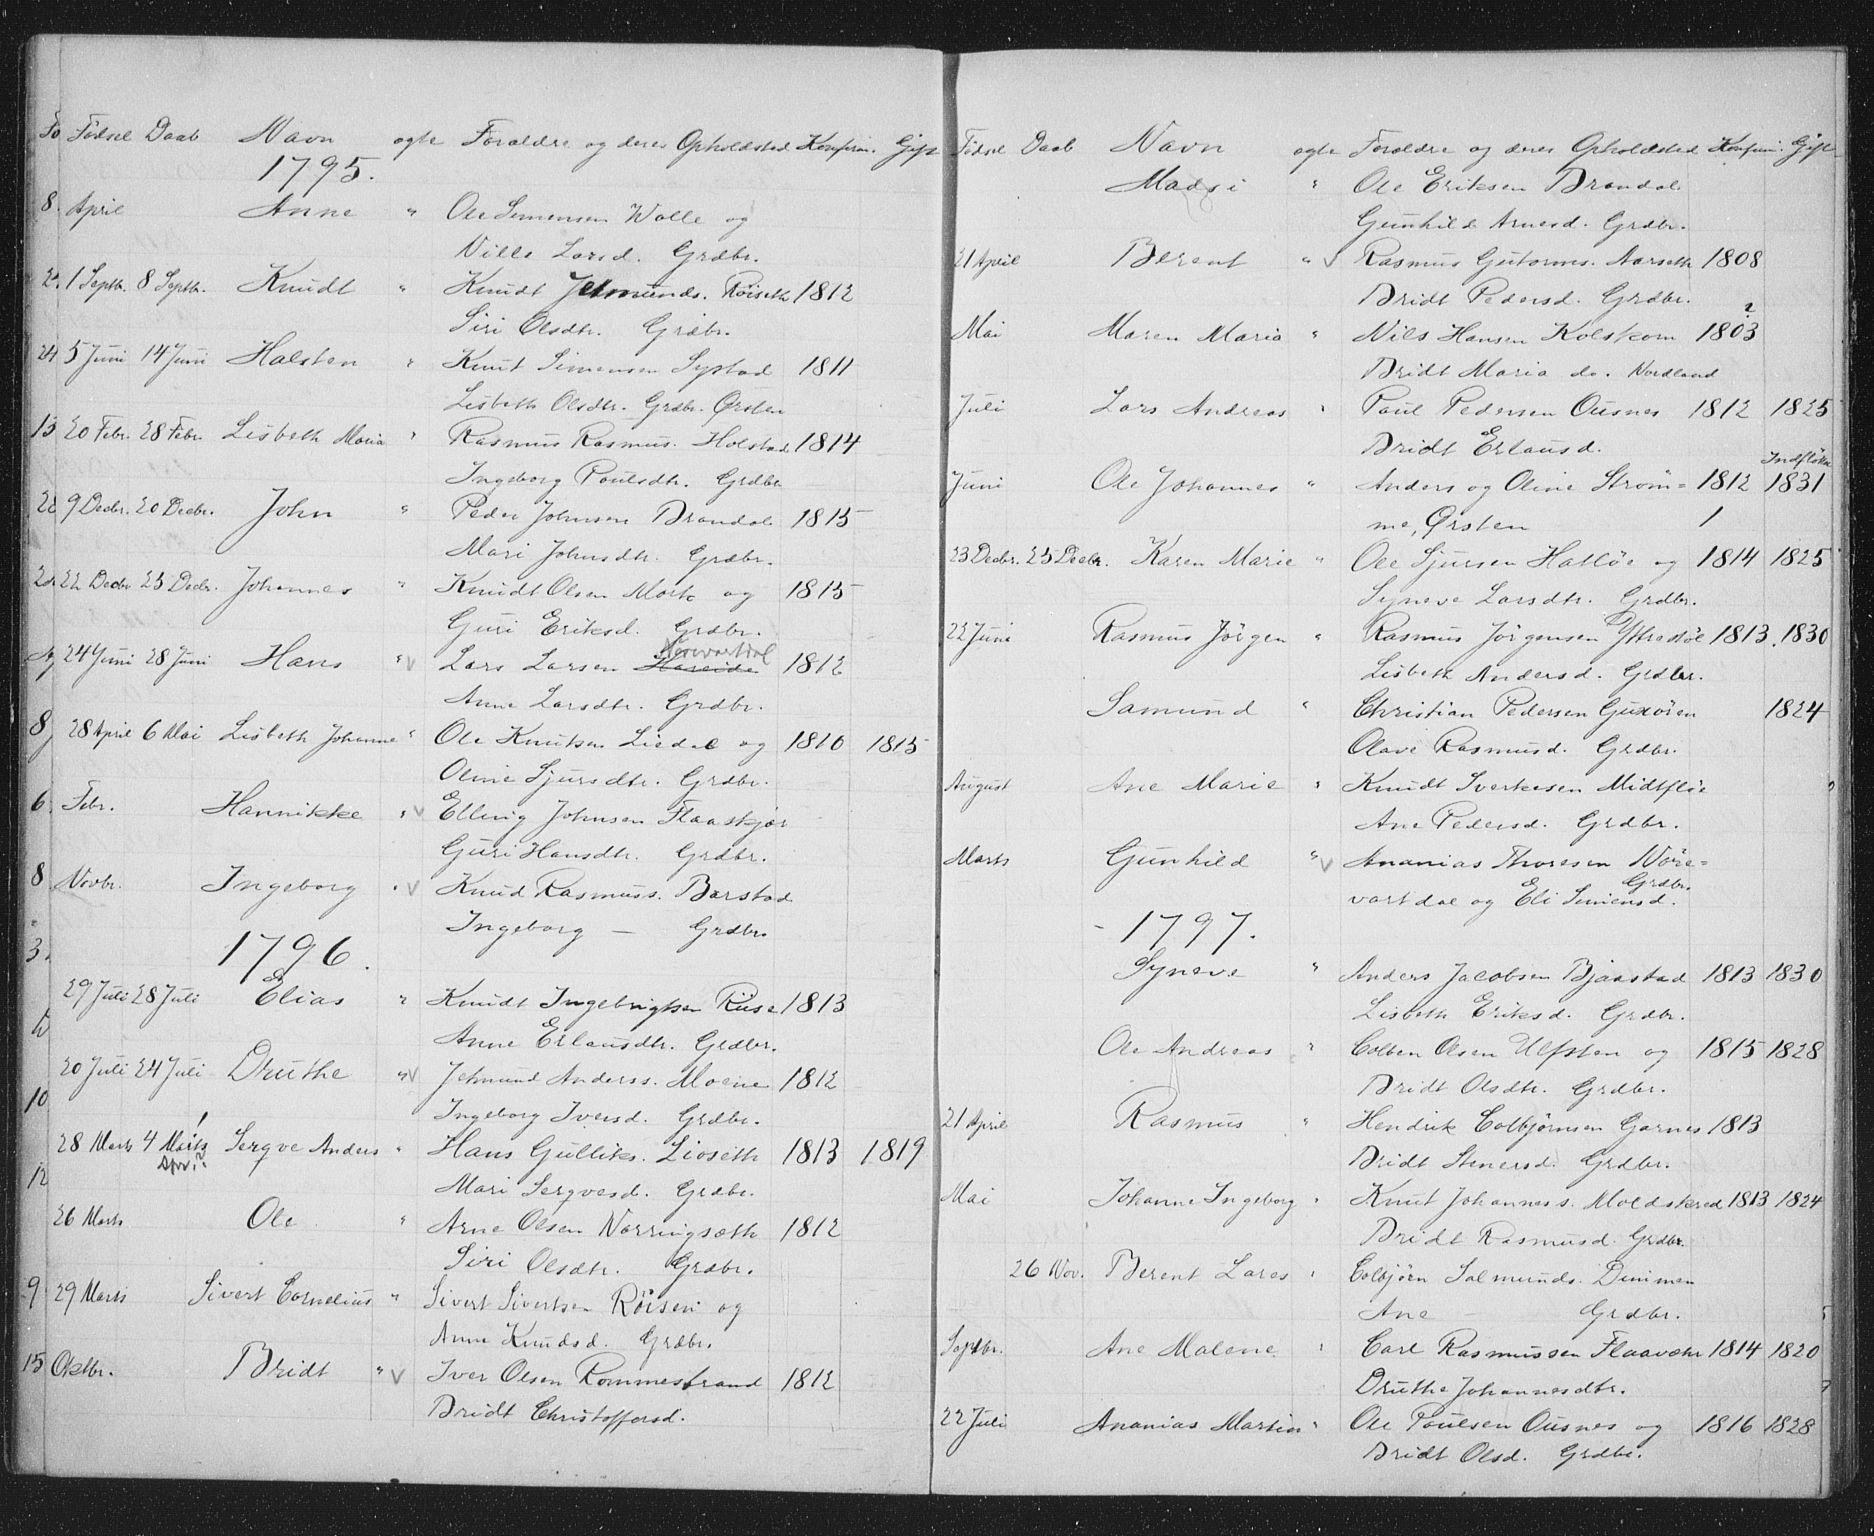 Fødsel Daab Navn ægte Forældre og deres Opholdsted Konfirm. Gift
1795.
8 April Anne " Ole Simensen Walle og
Nille Larsd. Grdbr.
1 Septb. 8 Septb. Knudt " Knudt Jetmunds. Röiseth 1812
Siri Olsdtr. Grdbr.
24 5 Juni 14 Juni Halsten " Knut Simensen Systad 1811
Lisbeth Olsdtr. Grdbr. Ørsten
13 20 Febr. 28 Febr. Lisbeth Maria " Rasmus Rasmus. Holstad 1814
Ingeborg Poulsdtr. Grdbr
9 Decbr. 20 Decbr. John " Peder Johnsen Brandal 1815
Mari Johnsdtr. Grdbr.
22 Decbr 25 Decbr. Johannes " Knudt Olsen Mork og 1815
Guri Eriksd. Grdbr.
24 Juni 28 Juni Hans " V Lars Larsen Hareide Nörevartdal 1812
Anne Larsdtr. Grdbr.
8 28 April 6 Mai Lisbeth Johanne " Ole Knutsen Liedal og 1810 1815
Oline Sjursdtr. Grdbr.
6 Febr. Hannikke " V Elling Johnsen Flaaskjær
Guri Hansdtr. Grdbr.
8 Novbr. Ingeborg " V Knud Rasmuss. Barstad
Ingeborg — Grdbr.
3. 1796.
29 Juli 28 Juli Elias " Knudt Ingebrigtsen Riise 1813
Anne Erlandsdtr. Grdbr.
20 Juli 24 Juli Druthe " V Jetmund Anderss. Moene 1812
10 Ingeborg Iversd. Grdbr.
28 Marts 4 Marts ! Sergve Anders " Hans Gulliks. Lioseth 1813 1819
April?
12 Mari Sergvesd. Grdbr.
26 Marts Ole " Arne Olsen Varringsæth 1812
Siri Olsdtr. Grdbr.
9 29 Marts Sivert Cornelius " Sivert Sivertsen Röisen og
Anne Knudsd. Grdbr.
15 Oktbr. Bridt " V Iver Olsen Rommestrand 1812
Bridt Christoffersd.
Fødsel Daab Navn ægte Forældre og deres Opholdsted Konfirm. Gift
Madsi " Ole Eriksen Brandal
Gunhild Arnesd. Grdbr.
21 April Berent " V Rasmus Gutorms. Aarseth 1808
Bridt Pedersd. Grdbr.
Mai Maren Maria " Nils Hansen Kolskom 1803 ?
Bridt Maria do. Nordland
Juli Lars Andreas " Paul Pedersen Ousnes 1812 1825
Bridt Erlansd.
Indfløtte
Juni Ole Johannes " Anders og Oline Ström= 1812 1831
me, Ørsten
23 Decbr. 25 Decbr. Karen Marie " Ole Sjursen Hatlöe og 1814 1825
Syneve Larsdtr. Grdbr.
22 Juni Rasmus Jörgen " Rasmus Jörgensen Yttreflöe 1813 1830
Lisbeth Andersd. Grdbr.
Samund " Christian Pedersen Gurören 1824
Olave Rasmusd. Grdbr.
August Ane Marie " Knudt Sverkesen Midtflöe
Ane Pedersd. Grdbr.
Marts Gunhild " V Ananias Thoresen Nöre=
vartdal og Eli Simensd. Grdbr.
- 1797.
Syneve " Anders Jacobsen Bjaastad 1813 1830
Lisbeth Eriksd. Grdbr.
Ole Andreas " Colben Olsen Ulfsten og 1815 1828
Bridt Olsdtr. Grdbr.
21 April Rasmus " Hendrik Colbjørnsen Garnes 1813
Bridt Stenersd. Grdbr.
Mai Johanne Ingeborg " Knut Johanness. Moldskred 1813 1824
Bridt Rasmusd. Grdbr.
26 Nov. Berent Lares " Colbjörn Salmunds. Dimmen
Ane — Grdbr.
Septbr. Ane Malene " Carl Rasmussen Flaavær 1814 1820
Druthe Johannesdtr.
22 Juli Ananias Martin " Ole Poulsen Ousnes og 1816 1828
Bridt Olsd. Grdbr.